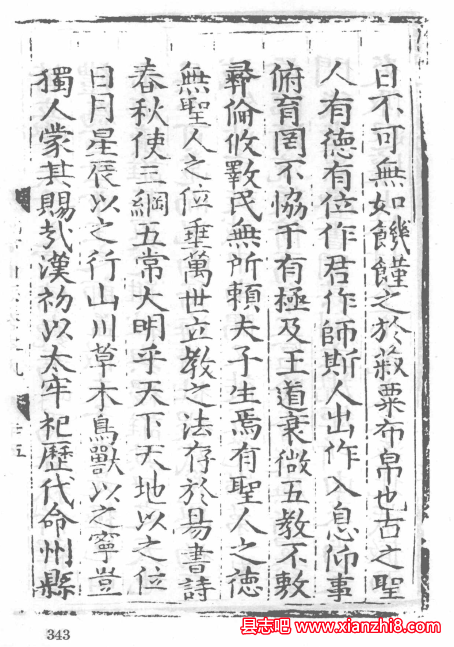 日不可無如饑饉之於菽粟布帛也古之聖
人有德有位作君作師斯人出作入息仰事
俯育罔不恊于有極及王道衰微五教不敷
彛倫攸斁民無所賴夫子生焉有聖人之德
無聖人之位垂萬世立教之法存於易書詩
春秋使三綱五常大明乎天下天地以之位
日月星辰以之行山川草木鳥獸以之寧豈
獨人蒙其賜㢤漢初以太牢祀歷代命州縣
343
县志吧 www.xianzhi8.com